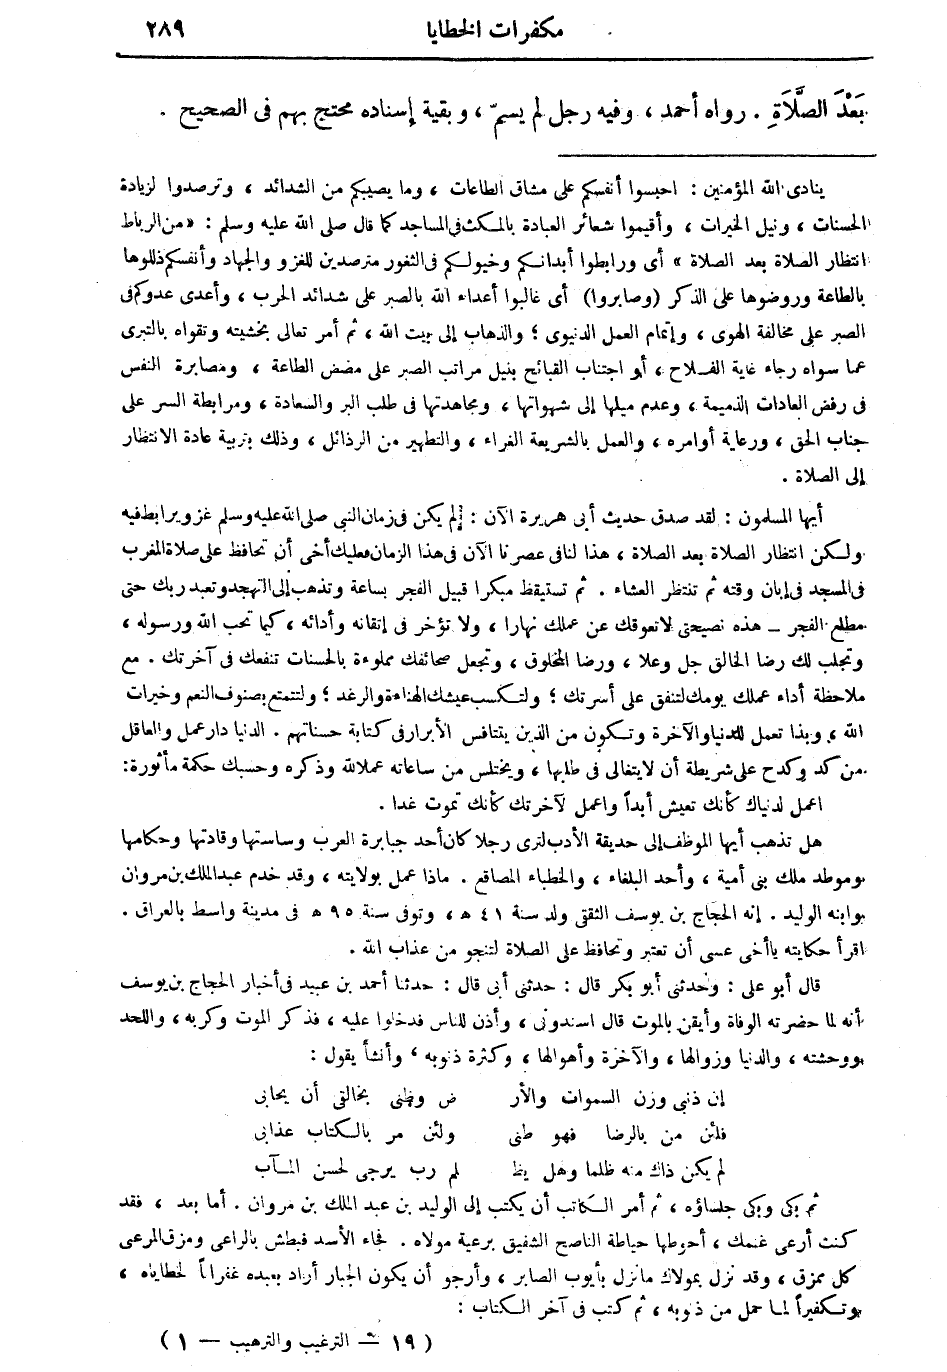 مكفرات الخطايا ٢٨٩
بَعْدَ الصَّلَاةِ . رواه أحمد ، وفيه رجل لم يسمّ ، وبقية إسناده محتج بهم فى الصحيح .
ينادى الله المؤمنين : احبسوا أنفسكم على مشاق الطاعات ، وما يصيبكم من الشدائد ، وترصدوا لزيادة
الحسنات ، ونيل الخيرات ، وأقيموا شعائر العبادة بالمكث فى المساجد كما قال صلى الله عليه وسلم : « من الرباط
انتظار الصلاة بعد الصلاة » أى ورابطوا أبدانكم وخيولكم فى الثغور مترصدين للغزو والجهاد وأنفسكم ذللوها
بالطاعة وروضوها على الذكر (وصابروا) أى غالبوا أعداء الله بالصبر على شدائد الحرب ، وأعدى عدوكم فى
الصبر على مخالفة الهوى ، وإتمام العمل الدنيوى ؛ والذهاب إلى بيت الله ، ثم أمر تعالى بخشيته وتقواه بالتبرى
عما سواه رجاء غاية الفلاح ، أو اجتناب القبائح بنيل مراتب الصبر على مضض الطاعة ، ومصابرة النفس
فى رفض العادات الذميمة ، وعدم ميلها إلى شهواتها ، ومجاهدتها فى طلب البر والسعادة ، ومرابطة السر على
جناب الحق ، ورعاية أوامره ، والعمل بالشريعة الغراء ، والتطهير من الرذائل ، وذلك بتربية عادة الانتظار
إلى الصلاة .
أيها المسلمون : لقد صدق حديث أبى هريرة الآن : لم يكن فى زمان النبى صلى الله عليه وسلم غزو يرابط فيه
ولكن انتظار الصلاة بعد الصلاة ، هذا لنا فى عصرنا الآن فى هذا الزمان فعليك أخى أن تحافظ على صلاة المغرب
فى المسجد فى إبان وقته ثم تنتظر العشاء . ثم تستيقظ مبكرا قبيل الفجر بساعة وتذهب إلى التهجد وتعبد ربك حتى
مطلع الفجر — هذه نصيحتى لا تعوقك عن عملك نهارا ، ولا تؤخر فى إتقانه وأدائه ، كيما تحب الله ورسوله ،
وتجلب لك رضا الخالق جل وعلا ، ورضا المخلوق ، وتجعل صحائفك مملوءة بالحسنات تنفعك فى آخرتك . مع
ملاحظة أداء عملك يومك لتنفق على أسرتك ؛ ولتكسب عيشك الهناءة والرغد ؛ ولتتمتع بصنوف النعم وخيرات
الله ، وبذا تعمل للدنيا والآخرة وتكون من الذين يتنافس الأبرار فى كتابة حسناتهم . الدنيا دار عمل والعاقل
من كد وكدح على شريطة أن لا يتغالى فى طلبها ، ويختلس من ساعاته عملا لله وذكره وحسبك حكمة مأثورة :
اعمل لدنياك كأنك تعيش أبداً واعمل لآخرتك كأنك تموت غدا .
هل تذهب أيها الموظف إلى حديقة الأدب لترى رجلا كان أحد جبابرة العرب وساستها وقادتها وحكامها
وموطد ملك بنى أمية ، وأحد البلغاء ، والخطباء المصاقع . ماذا عمل بولايته ، وقد خدم عبد الملك بن مروان
وابنه الوليد . إنه الحجاج بن يوسف الثقفى ولد سنة ٤١ هـ ، وتوفى سنة ٩٥ هـ فى مدينة واسط بالعراق .
اقرأ حكايته يا أخى عسى أن تعتبر وتحافظ على الصلاة لتنجو من عذاب الله .
قال أبو على : وحدثنى أبو بكر قال : حدثنى أبى قال : حدثنا أحمد بن عبيد فى أخبار الحجاج بن يوسف
أنه لما حضرته الوفاة وأيقن بالموت قال اسندونى ، وأذن للناس فدخلوا عليه ، فذكر الموت وكربه ، واللحد
ووحشته ، والدنيا وزوالها ، والآخرة وأهوالها ، وكثرة ذنوبه ، وأنشأ يقول :
إن ذنبي وزن السموات والأر ض وظنى بخالقى أن يحابى
فلئن من بالرضا فهو ظنى ولئن مر بالكتاب عذابى
لم يكن ذاك منه ظلما وهل يظ لم رب يرجى لحسن المآب
ثم بكى وبكى جلساؤه ، ثم أمر الكاتب أن يكتب إلى الوليد بن عبد الملك بن مروان . أما بعد ، فقد
كنت أرعى غنمك ، أحوطها حياطة الناصح الشفيق برعية مولاه . فجاء الأسد فبطش بالراعى ومزق المرعى
كل ممزق ، وقد نزل بمولاك ما نزل بأيوب الصابر ، وأرجو أن يكون الجبار أراد بعبده غفراناً لخطاياه ،
وتكفيراً لما حمل من ذنوبه ، ثم كتب فى آخر الكتاب :
( ١٩ — الترغيب والترهيب — ١ )